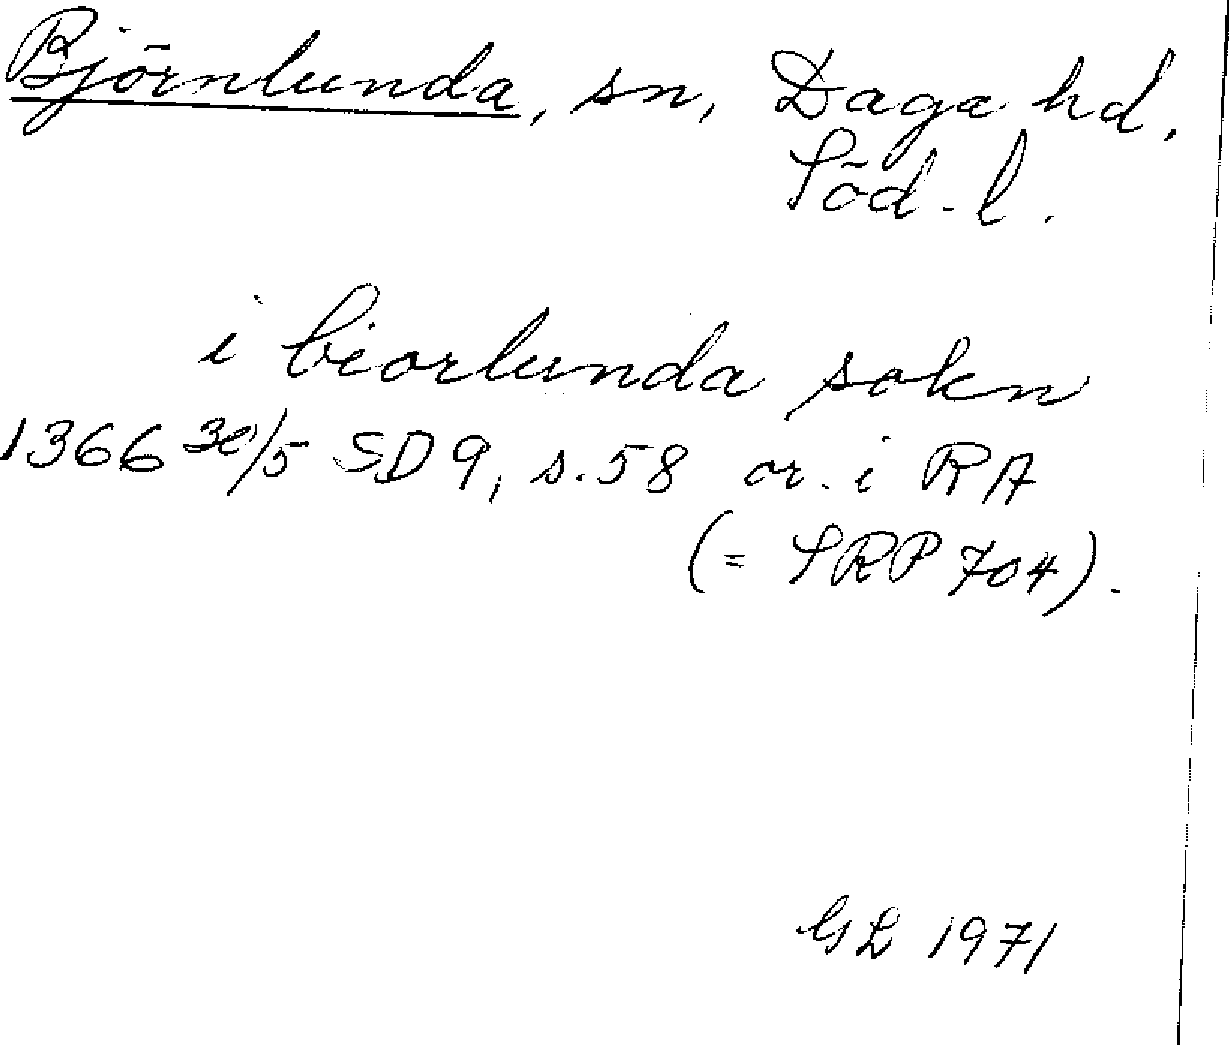 Björnlunda, sn, Daga hd.
Söd. l.
i biorlunda sokn
1366 30/5 SD 9, s. 58 or. i RA
(= SRP 704).
GL 1971